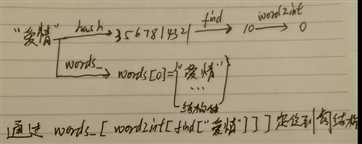 "爱情" hash 3567814321 find 10 word2int 0
words_ words[0] = { "爱情"
...
结构体
通过 words_[word2int[find["爱情"]]] 定位到词结构